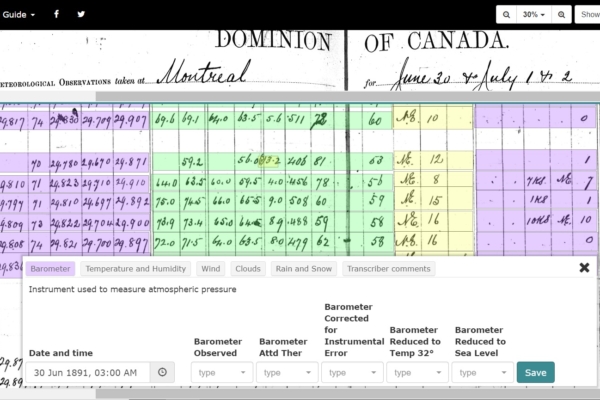 Guide
30%
Show
DOMINION OF CANADA.
METEOROLOGICAL OBSERVATIONS taken at Montreal for June 30 & July 1 & 2
29.817 74 29.830 29.709 29.907 69.6 69.1 64.0 63.5 5.6 .511 72 60 N.E. 10 . . . . 0
70 29.780 29.670 29.871 59.2 56.0 13.2 .406 81 53 N.E. 12 1
29.810 71 29.823 29.710 29.910 64.0 63.5 60.0 59.5 4.0 .456 78 56 N.E. 8 . . 7KS N.E. 7
29.797 71 29.810 29.697 29.892 75.0 74.5 66.0 65.5 9.0 .508 60 59 N.E. 15 . . 1KS . 1
29.809 73 29.822 29.704 29.900 73.9 73.4 65.0 64.5 8.9 .488 59 58 N.E. 16 . . 10KS N.E. 10
29.808 74 29.821 29.700 29.897 72.0 71.5 64.0 63.5 8.0 .479 62 58 N.E. 16 . . . . 0
Barometer Temperature and Humidity Wind Clouds Rain and Snow Transcriber comments
Instrument used to measure atmospheric pressure
Date and time
Barometer Observed
Barometer Attd Ther
Barometer Corrected for Instrumental Error
Barometer Reduced to Temp 32°
Barometer Reduced to Sea Level
30 Jun 1891, 03:00 AM type type type type type Save